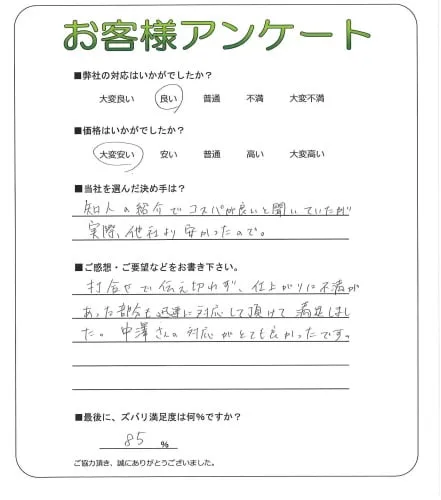 お客様アンケート
■弊社の対応はいかがでしたか？
大変良い 良い 普通 不満 大変不満
■価格はいかがでしたか？
大変安い 安い 普通 高い 大変高い
■当社を選んだ決め手は？
知人の紹介でコスパが良いと聞いていたが
実際、他社より安かったので。
■ご感想・ご要望などをお書き下さい。
打合せで伝え切れず、仕上がりに不満が
あった部分も迅速に対応して頂けて満足しまし
た。中澤さんの対応がとても良かったです。
■最後に、ズバリ満足度は何％ですか？
85 %
ご協力頂き、誠にありがとうございました。